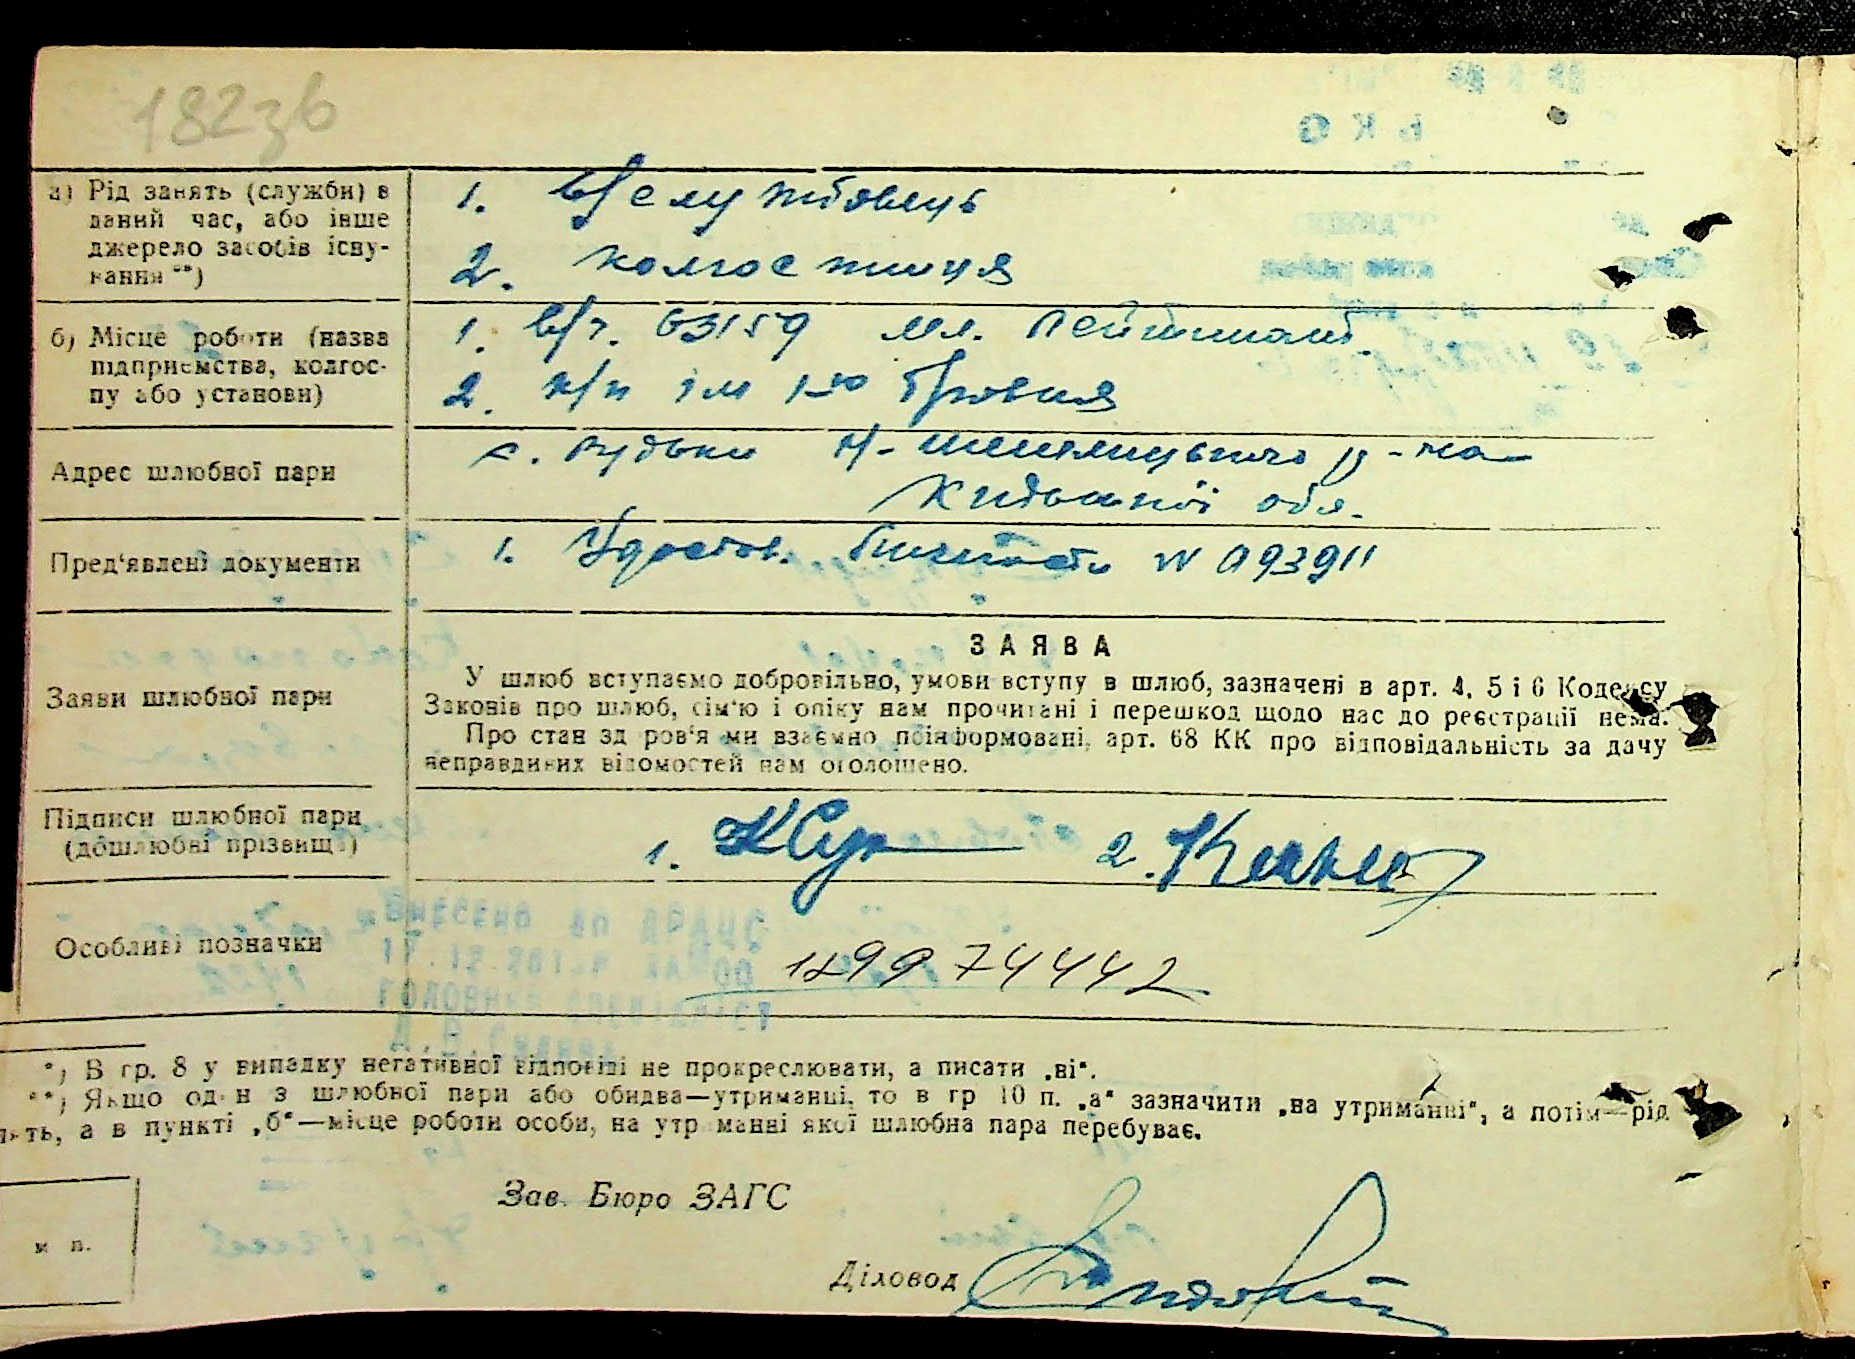 182зв
а) Рід занять (служби) в
даний час, або інше
джерело засобів існу-
вання **)
1. в/службовець
2. колгоспниця
б) Місце роботи (назва
підприємства, колгос-
пу або установи)
1. в/ч. 63159 мл. лейтинант.
2. к/п ім 1-го травня
Адрес шлюбної пари
с. Рудьки р-на
обл.
Пред'явлені документи
1. Удостов. личности N 093911
Заяви шлюбної пари
ЗАЯВА
У шлюб вступаємо добровільно, умови вступу в шлюб, зазначені в арт. 4, 5 і 6 Кодексу
Законів про шлюб, сім'ю і опіку нам прочитані і перешкод щодо нас до реєстрації нема.
Про стан здоров'я ми взаємно поінформовані, арт. 68 КК про відповідальність за дачу
неправдивих відомостей нам оголошено.
Підписи шлюбної пари
(дошлюбні прізвища)
1. 2.
Особливі позначки
1299 74442
*) В гр. 8 у випадку негативної відповіді не прокреслювати, а писати „ні".
**) Якщо один з шлюбної пари або обидва—утриманці, то в гр 10 п. „а" зазначити „на утриманні", а потім—рід
а в пункті „б"—місце роботи особи, на утриманні якої шлюбна пара перебуває.
Зав. Бюро ЗАГС
м п.
Діловод